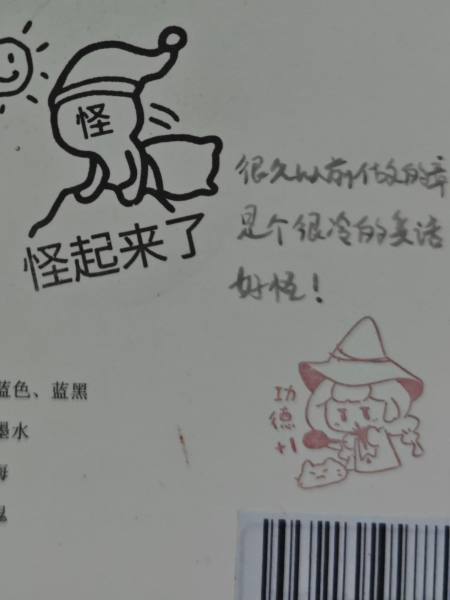 怪
怪起来了
很久以前做的梦
是个很冷的笑话
好怪！
功
德
+1
蓝色、蓝黑
墨水